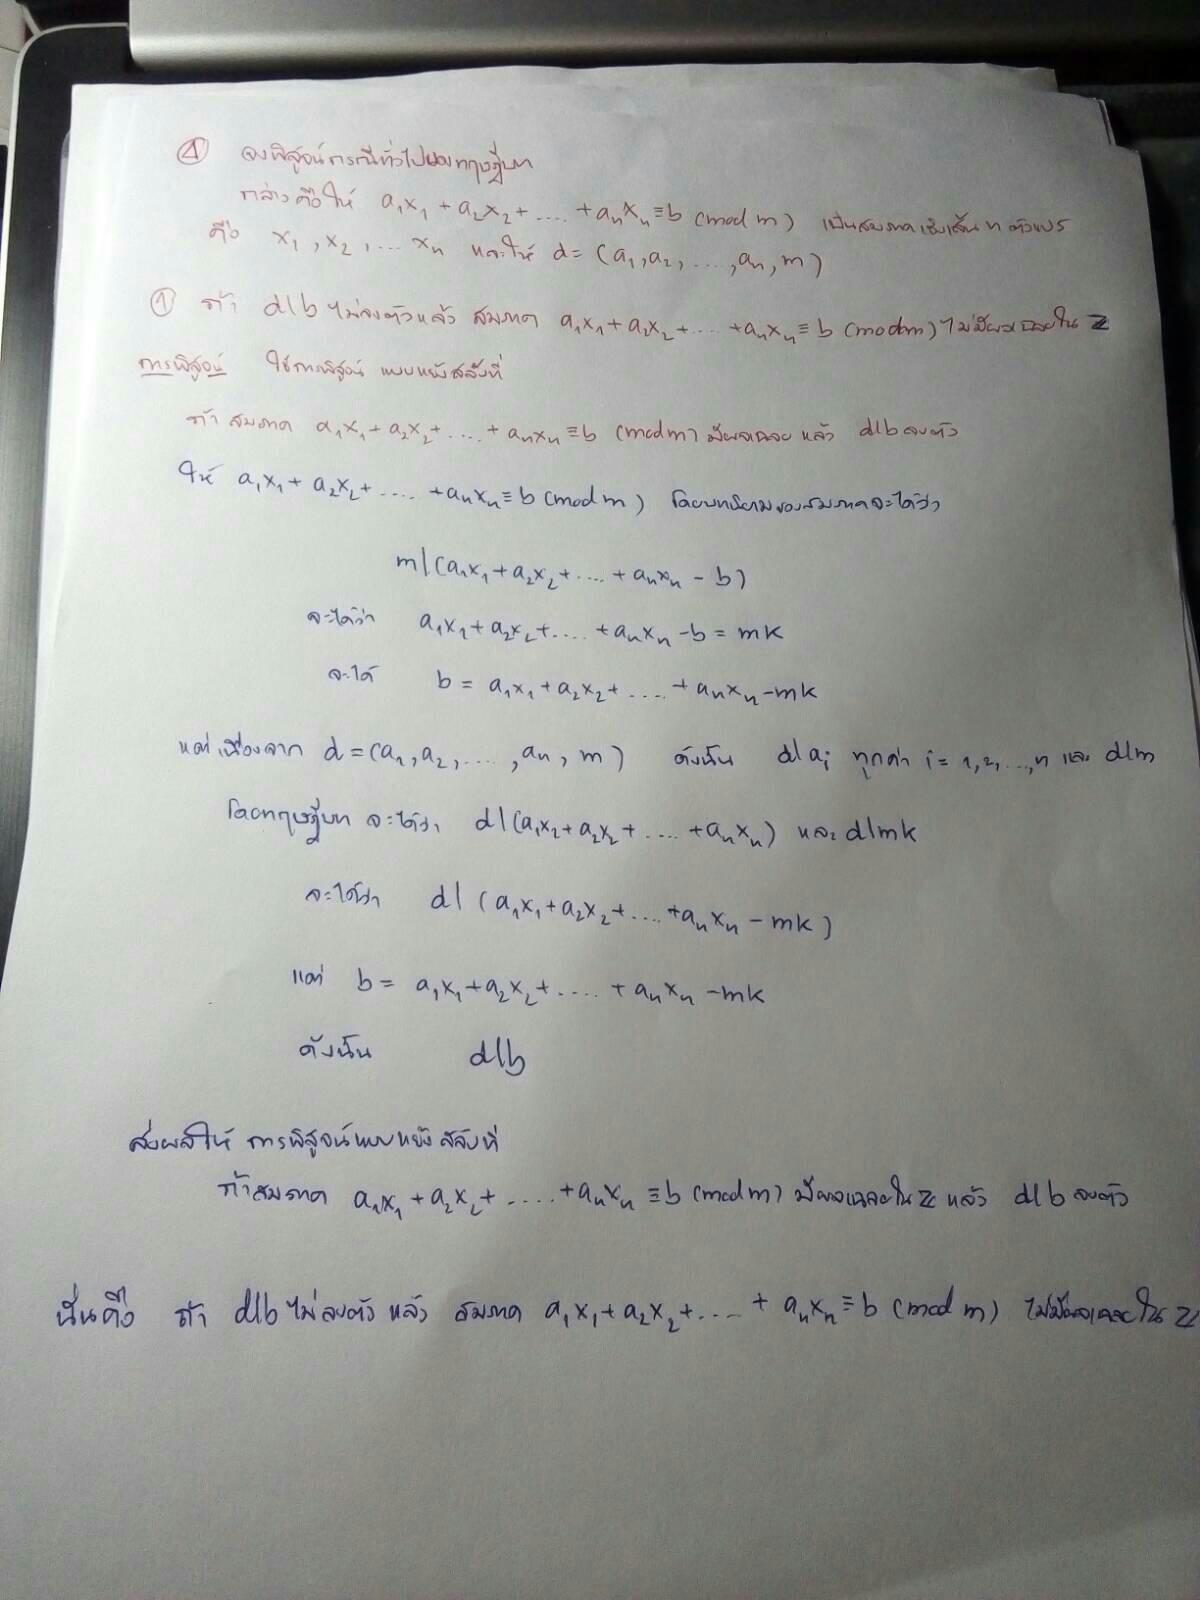 ④ จงพิสูจน์กรณีทั่วไปของทฤษฎีบท
กล่าวคือให้ a₁x₁ + a₂x₂ + .... + aₙxₙ ≡ b (mod m) เป็นสมภาคเชิงเส้น n ตัวแปร
คือ x₁ , x₂ , ... xₙ และให้ d = (a₁, a₂, ..., aₙ, m)
① ถ้า d|b ไม่ลงตัวแล้ว สมภาค a₁x₁ + a₂x₂ + .... + aₙxₙ ≡ b (mod m) ไม่มีผลเฉลยใน ℤ
การพิสูจน์ ใช้การพิสูจน์ แบบแย้งสลับที่
ถ้า สมภาค a₁x₁ + a₂x₂ + .... + aₙxₙ ≡ b (mod m) มีผลเฉลย แล้ว d|b ลงตัว
ให้ a₁x₁ + a₂x₂ + .... + aₙxₙ ≡ b (mod m) โดยบทนิยามของสมภาคจะได้ว่า
m|(a₁x₁ + a₂x₂ + .... + aₙxₙ - b)
จะได้ว่า a₁x₁ + a₂x₂ + .... + aₙxₙ - b = mk
จะได้ b = a₁x₁ + a₂x₂ + .... + aₙxₙ - mk
แต่เนื่องจาก d = (a₁, a₂, ...., aₙ, m) ดังนั้น d|aᵢ ทุกค่า i = 1, 2, ..., n และ d|m
โดยทฤษฎีบท จะได้ว่า d|(a₁x₂ + a₂x₂ + .... + aₙxₙ) และ d|mk
จะได้ว่า d| (a₁x₁ + a₂x₂ + .... + aₙxₙ - mk)
แต่ b = a₁x₁ + a₂x₂ + .... + aₙxₙ - mk
ดังนั้น d|b
ส่งผลให้ การพิสูจน์แบบแย้งสลับที่
ถ้าสมภาค a₁x₁ + a₂x₂ + .... + aₙxₙ ≡ b (mod m) มีผลเฉลยใน ℤ แล้ว d|b ลงตัว
นั่นคือ ถ้า d|b ไม่ลงตัว แล้ว สมภาค a₁x₁ + a₂x₂ + .... + aₙxₙ ≡ b (mod m) ไม่มีผลเฉลยใน ℤ